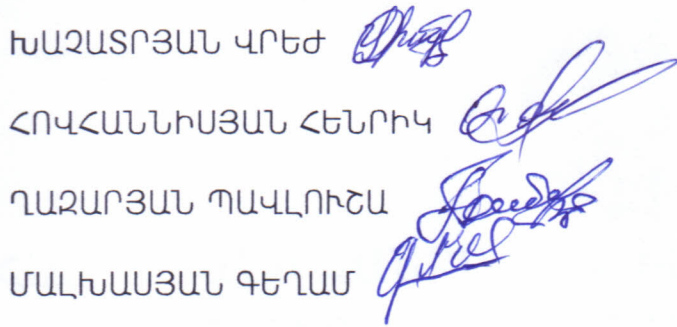 ԽԱՉԱՏՐՅԱՆ ՎՐԵԺ
ՀՈՎՀԱՆՆԻՍՅԱՆ ՀԵՆՐԻԿ
ՂԱԶԱՐՅԱՆ ՊԱՎԼՈՒՇԱ
ՄԱԼԽԱՍՅԱՆ ԳԵՂԱՄ